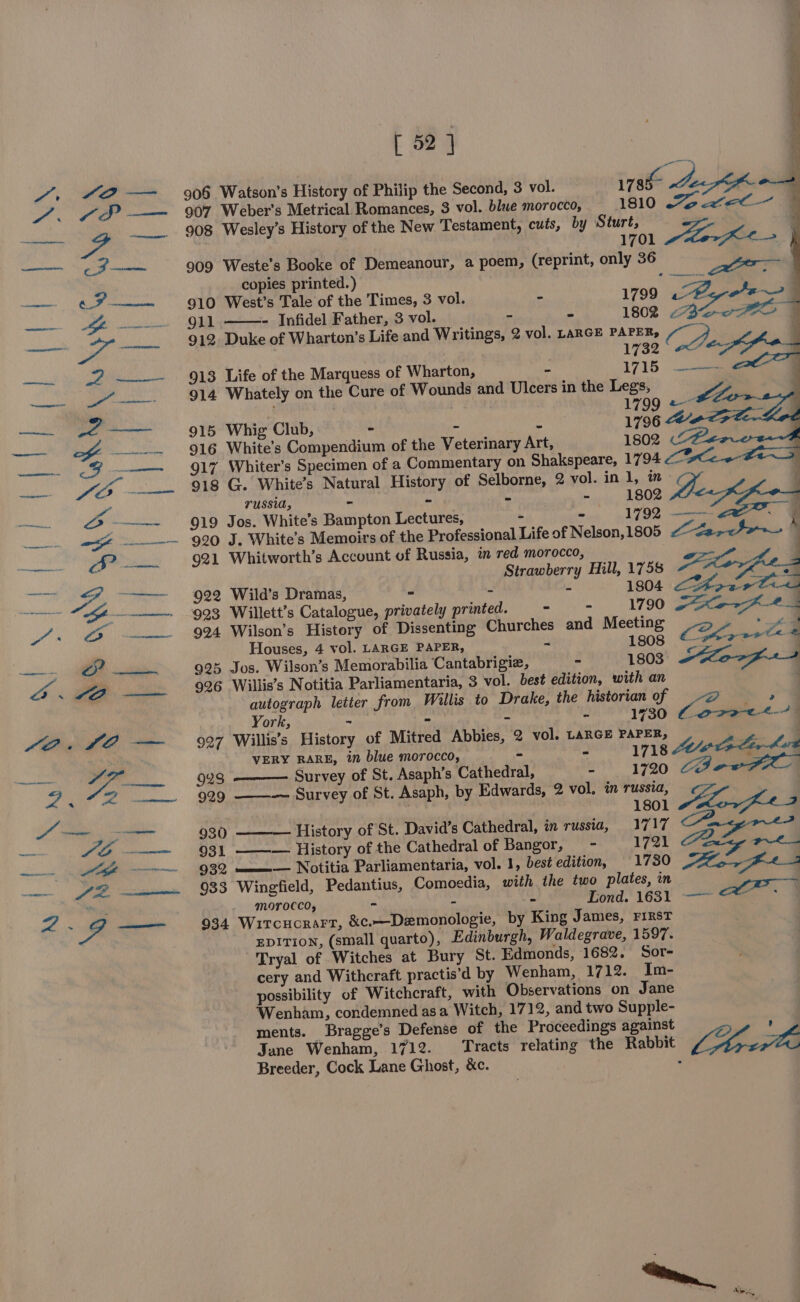 [ 52 ]
1. 10 — 906 Watson's History of Philip the Second, 3 vol. 1785
1. 18 — 907 Weber's Metrical Romances, 3 vol. blue morocco, 1810
908 Wesley's History of the New Testament, cuts, by Sturt,
1701
909 Weste's Booke of Demeanour, a poem, (reprint, only 36
copies printed.)
910 West's Tale of the Times, 3 vol. - 1799
911 ——- Infidel Father, 3 vol. - - 1802
912 Duke of Wharton's Life and Writings, 2 vol. LARGE PAPER,
1732
913 Life of the Marquess of Wharton, - 1715
914 Whately on the Cure of Wounds and Ulcers in the Legs,
1799
915 Whig Club, - - - 1796
916 White's Compendium of the Veterinary Art, 1802
917 Whiter's Specimen of a Commentary on Shakspeare, 1794
918 G. White's Natural History of Selborne, 2 vol. in 1, in
russia, - - - - 1802
919 Jos. White's Bampton Lectures, - - 1792
920 J. White's Memoirs of the Professional Life of Nelson, 1805
921 Whitworth's Account of Russia, in red morocco,
Strawberry Hill, 1758
922 Wild's Dramas, - - - 1804
923 Willett's Catalogue, privately printed. - - 1790
924 Wilson's History of Dissenting Churches and Meeting
Houses, 4 vol. LARGE PAPER, - 1808
925 Jos. Wilson's Memorabilia Cantabrigiæ, - 1803
926 Willis's Notitia Parliamentaria, 3 vol. best edition, with an
autograph letter from Willis to Drake, the historian of
York, - - - - 1730
10. 10 — 927 Willis's History of Mitred Abbies, 2 vol. LARGE PAPER,
VERY RARE, in blue morocco, - - 1718
928 ——— Survey of St. Asaph's Cathedral, - 1720
2. 12 — 929 ——— Survey of St. Asaph, by Edwards, 2 vol. in russia,
1801
930 ——— History of St. David's Cathedral, in russia, 1717
931 ——— History of the Cathedral of Bangor, - 1721
932 ——— Notitia Parliamentaria, vol. 1, best edition, 1730
933 Wingfield, Pedantius, Comoedia, with the two plates, in
morocco, - - - Lond. 1631
2. 9 — 934 WITCHCRAFT, &c.—Dæmonologie, by King James, FIRST
EDITION, (small quarto), Edinburgh, Waldegrave, 1597.
Tryal of Witches at Bury St. Edmonds, 1682. Sor-
cery and Withcraft practis'd by Wenham, 1712. Im-
possibility of Witchcraft, with Observations on Jane
Wenham, condemned as a Witch, 1712, and two Supple-
ments. Bragge's Defense of the Proceedings against
Jane Wenham, 1712. Tracts relating the Rabbit
Breeder, Cock Lane Ghost, &c.